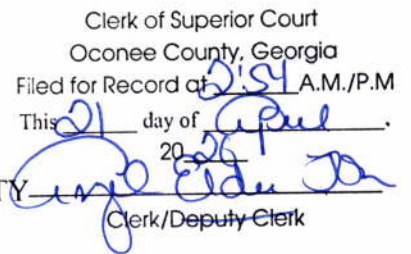 Clerk of Superior Court
Oconee County, Georgia
Filed for Record at 2:54 A.M./P.M
This 21 day of April.
20
TY
Clerk/Deputy Clerk